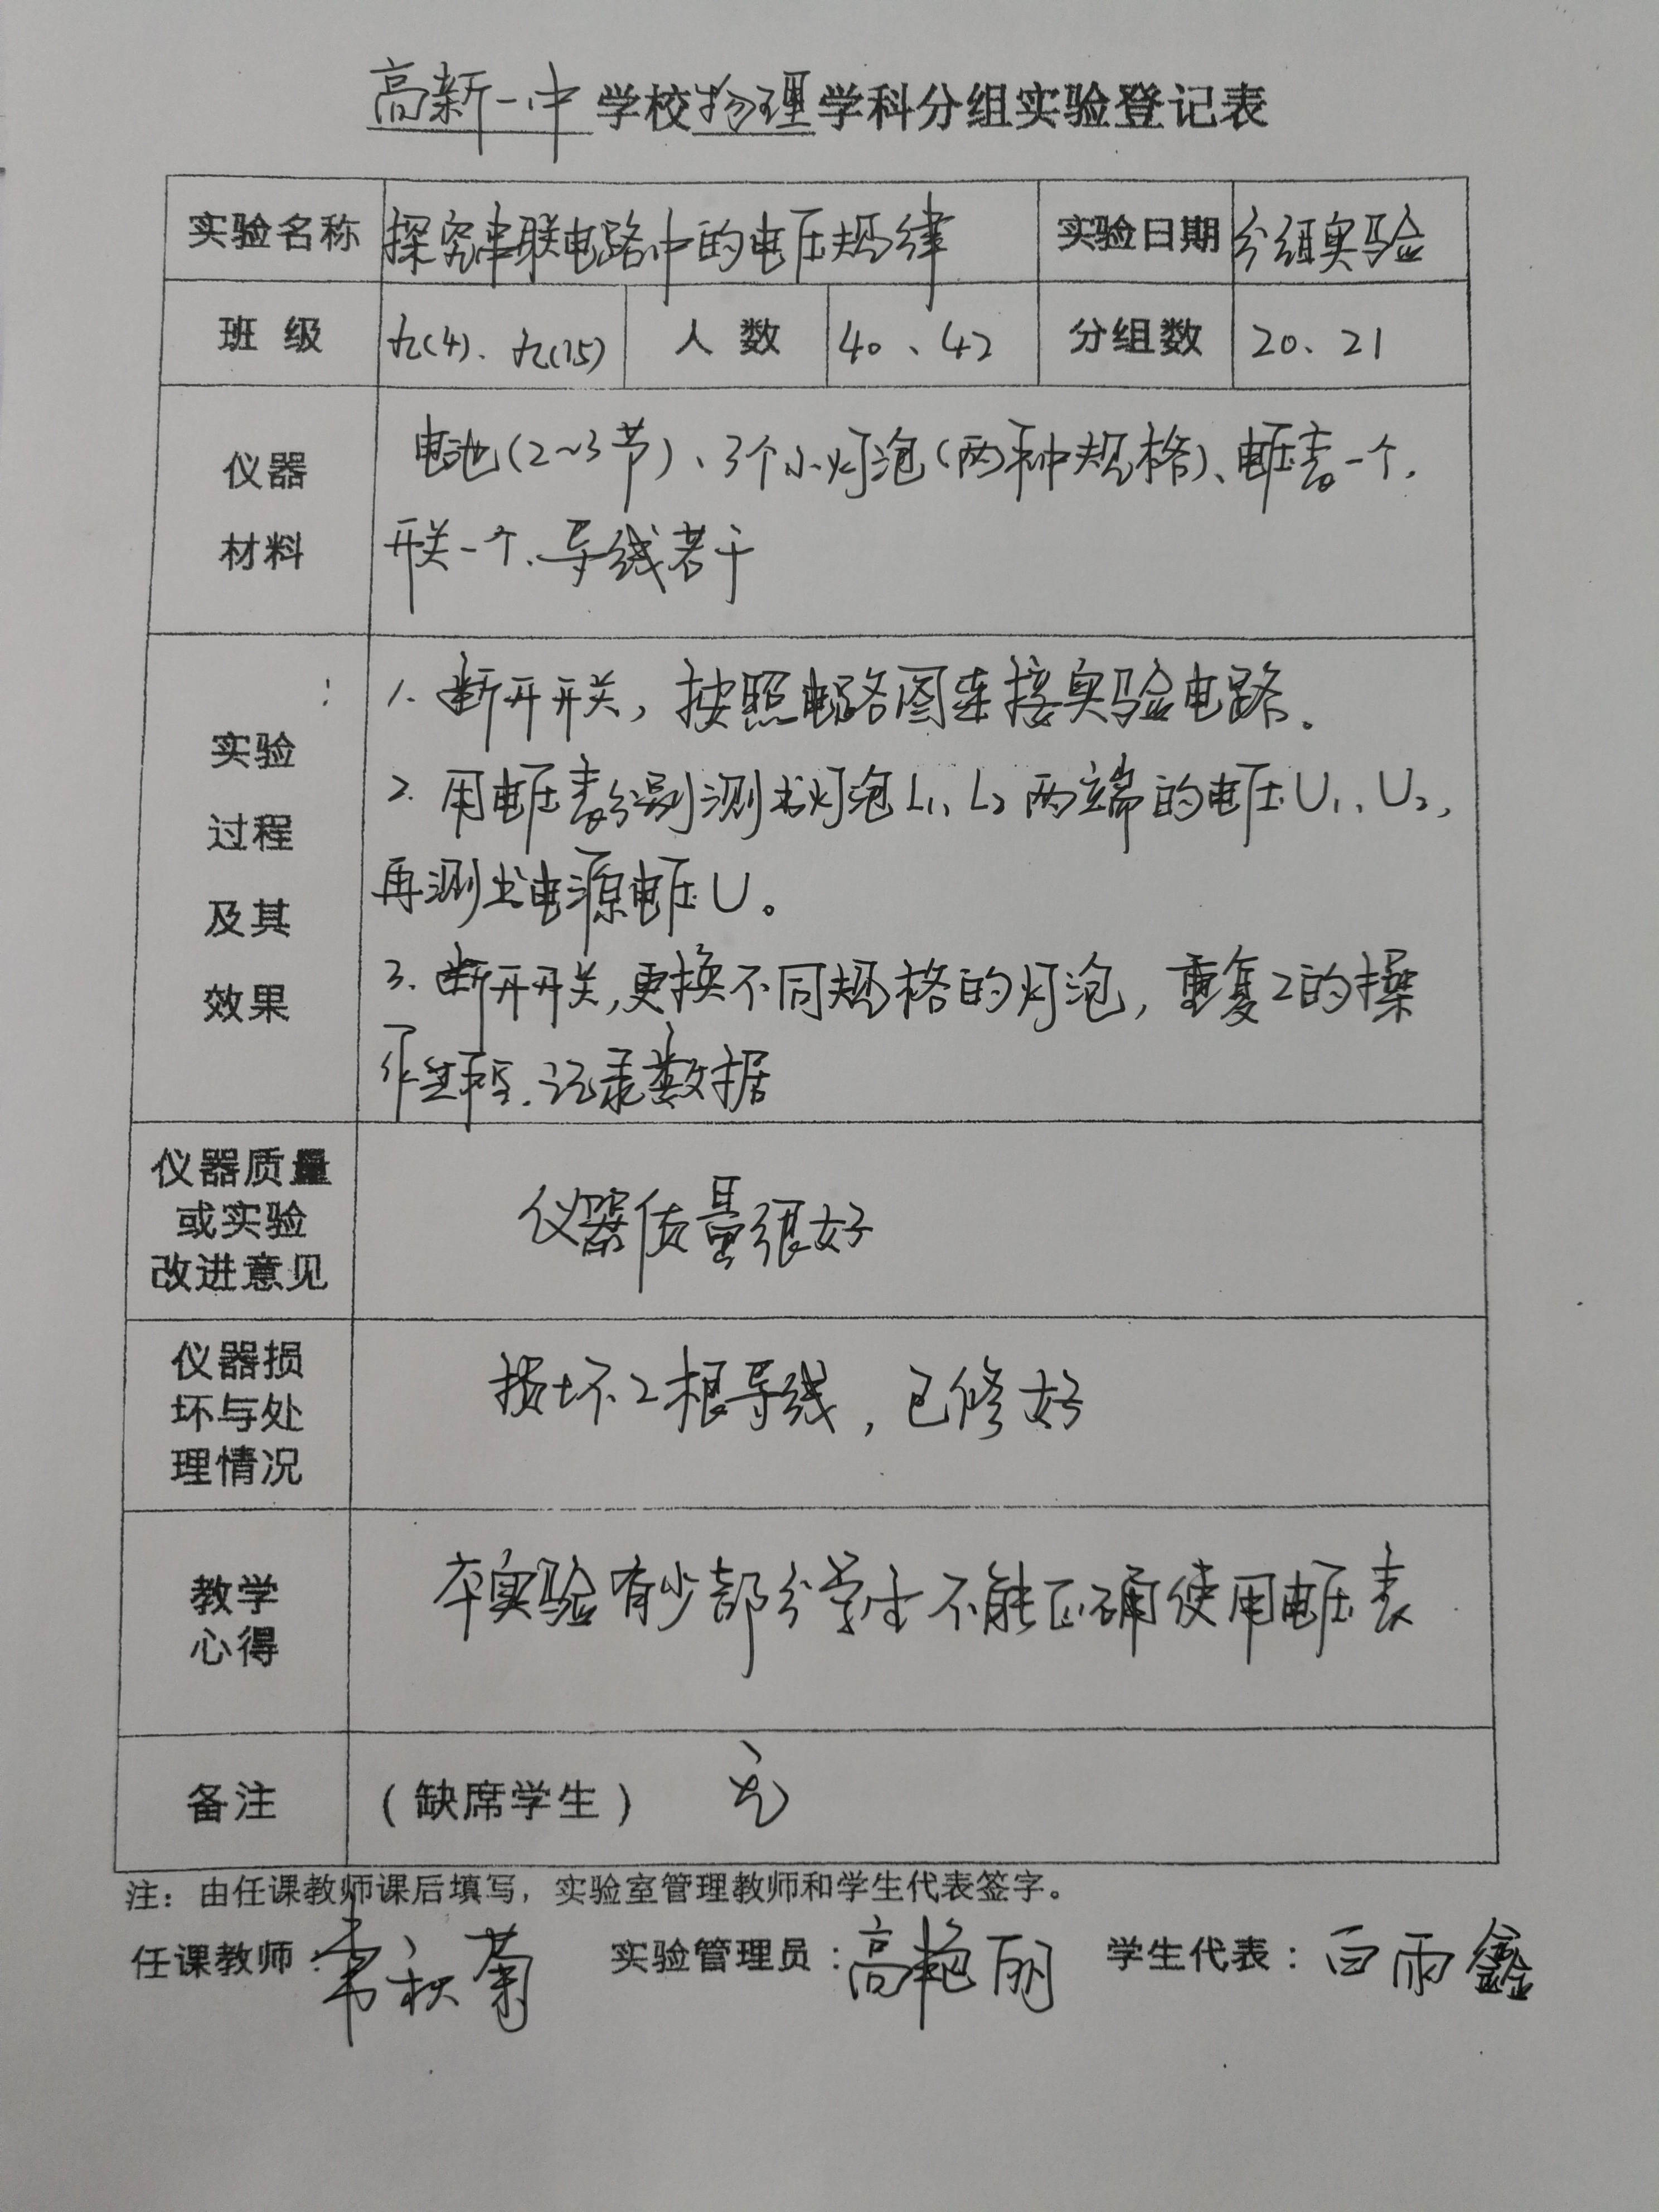 高新一中学校物理学科分组实验登记表
实验名称 探究串联电路中的电压规律 实验日期 分组实验
班级 九(4)、九(15) 人数 40、42 分组数 20、21
仪器
材料
电池(2~3节)、3个小灯泡(两种规格)、电压表一个、
开关一个、导线若干
实验
过程
及其
效果
1. 断开开关，按照电路图连接实验电路。
2. 用电压表分别测出灯泡L1、L2两端的电压U1、U2，
再测出电源电压U。
3. 断开开关，更换不同规格的灯泡，重复2的操
作过程，记录数据
仪器质量
或实验
改进意见
仪器质量很好
仪器损
坏与处
理情况
损坏2根导线，已修好
教学
心得
本实验有少部分学生不能正确使用电压表
备注 (缺席学生) 无
注：由任课教师课后填写，实验室管理教师和学生代表签字。
任课教师：秋菊 实验管理员：高艳丽 学生代表：白雨鑫